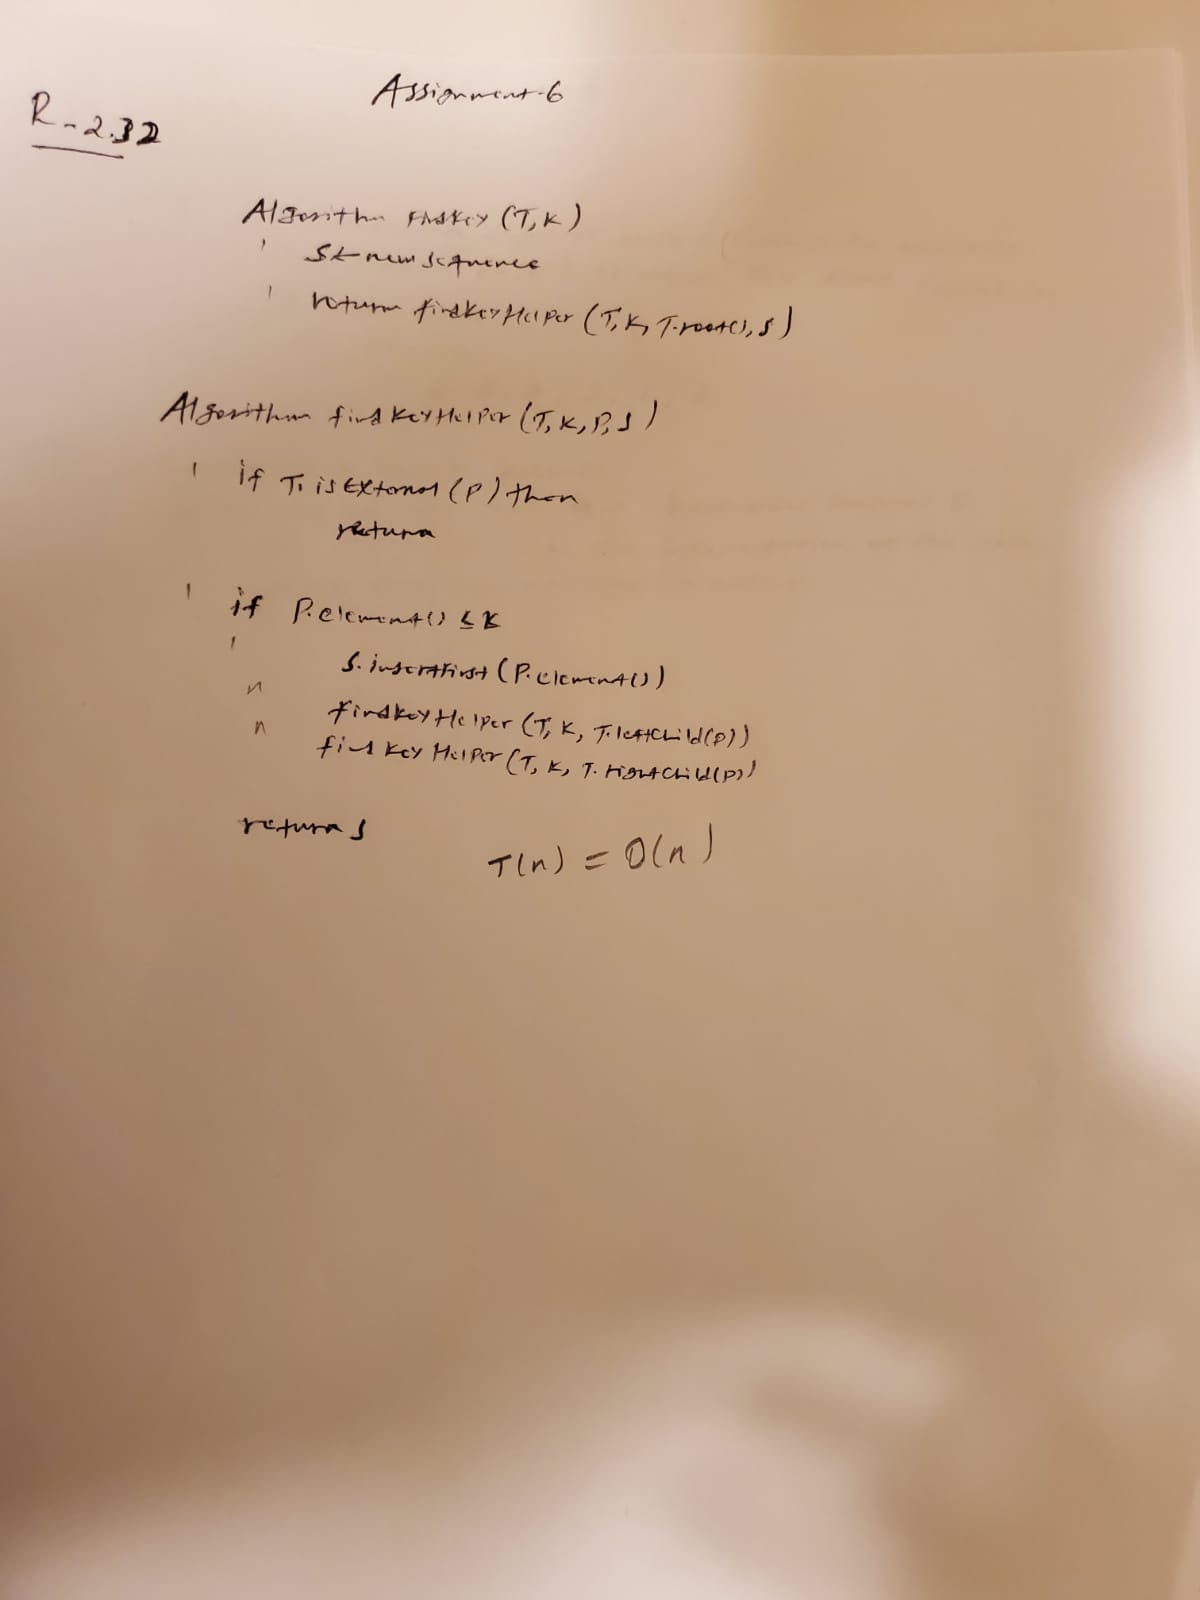 Assignment-6
R-2.32
Algorithm findKey (T, K)
1 S ← new sequence
1 return findKeyHelper (T, K, T.root(), S)
Algorithm findKeyHelper (T, K, P, S)
1 if T.isExternal (P) then
return
1 if P.element() ≤ K
1 S.insertFirst (P.element())
n findKeyHelper (T, K, T.leftChild(P))
n find Key Helper (T, K, T.rightChild(P))
return S
T(n) = O(n)